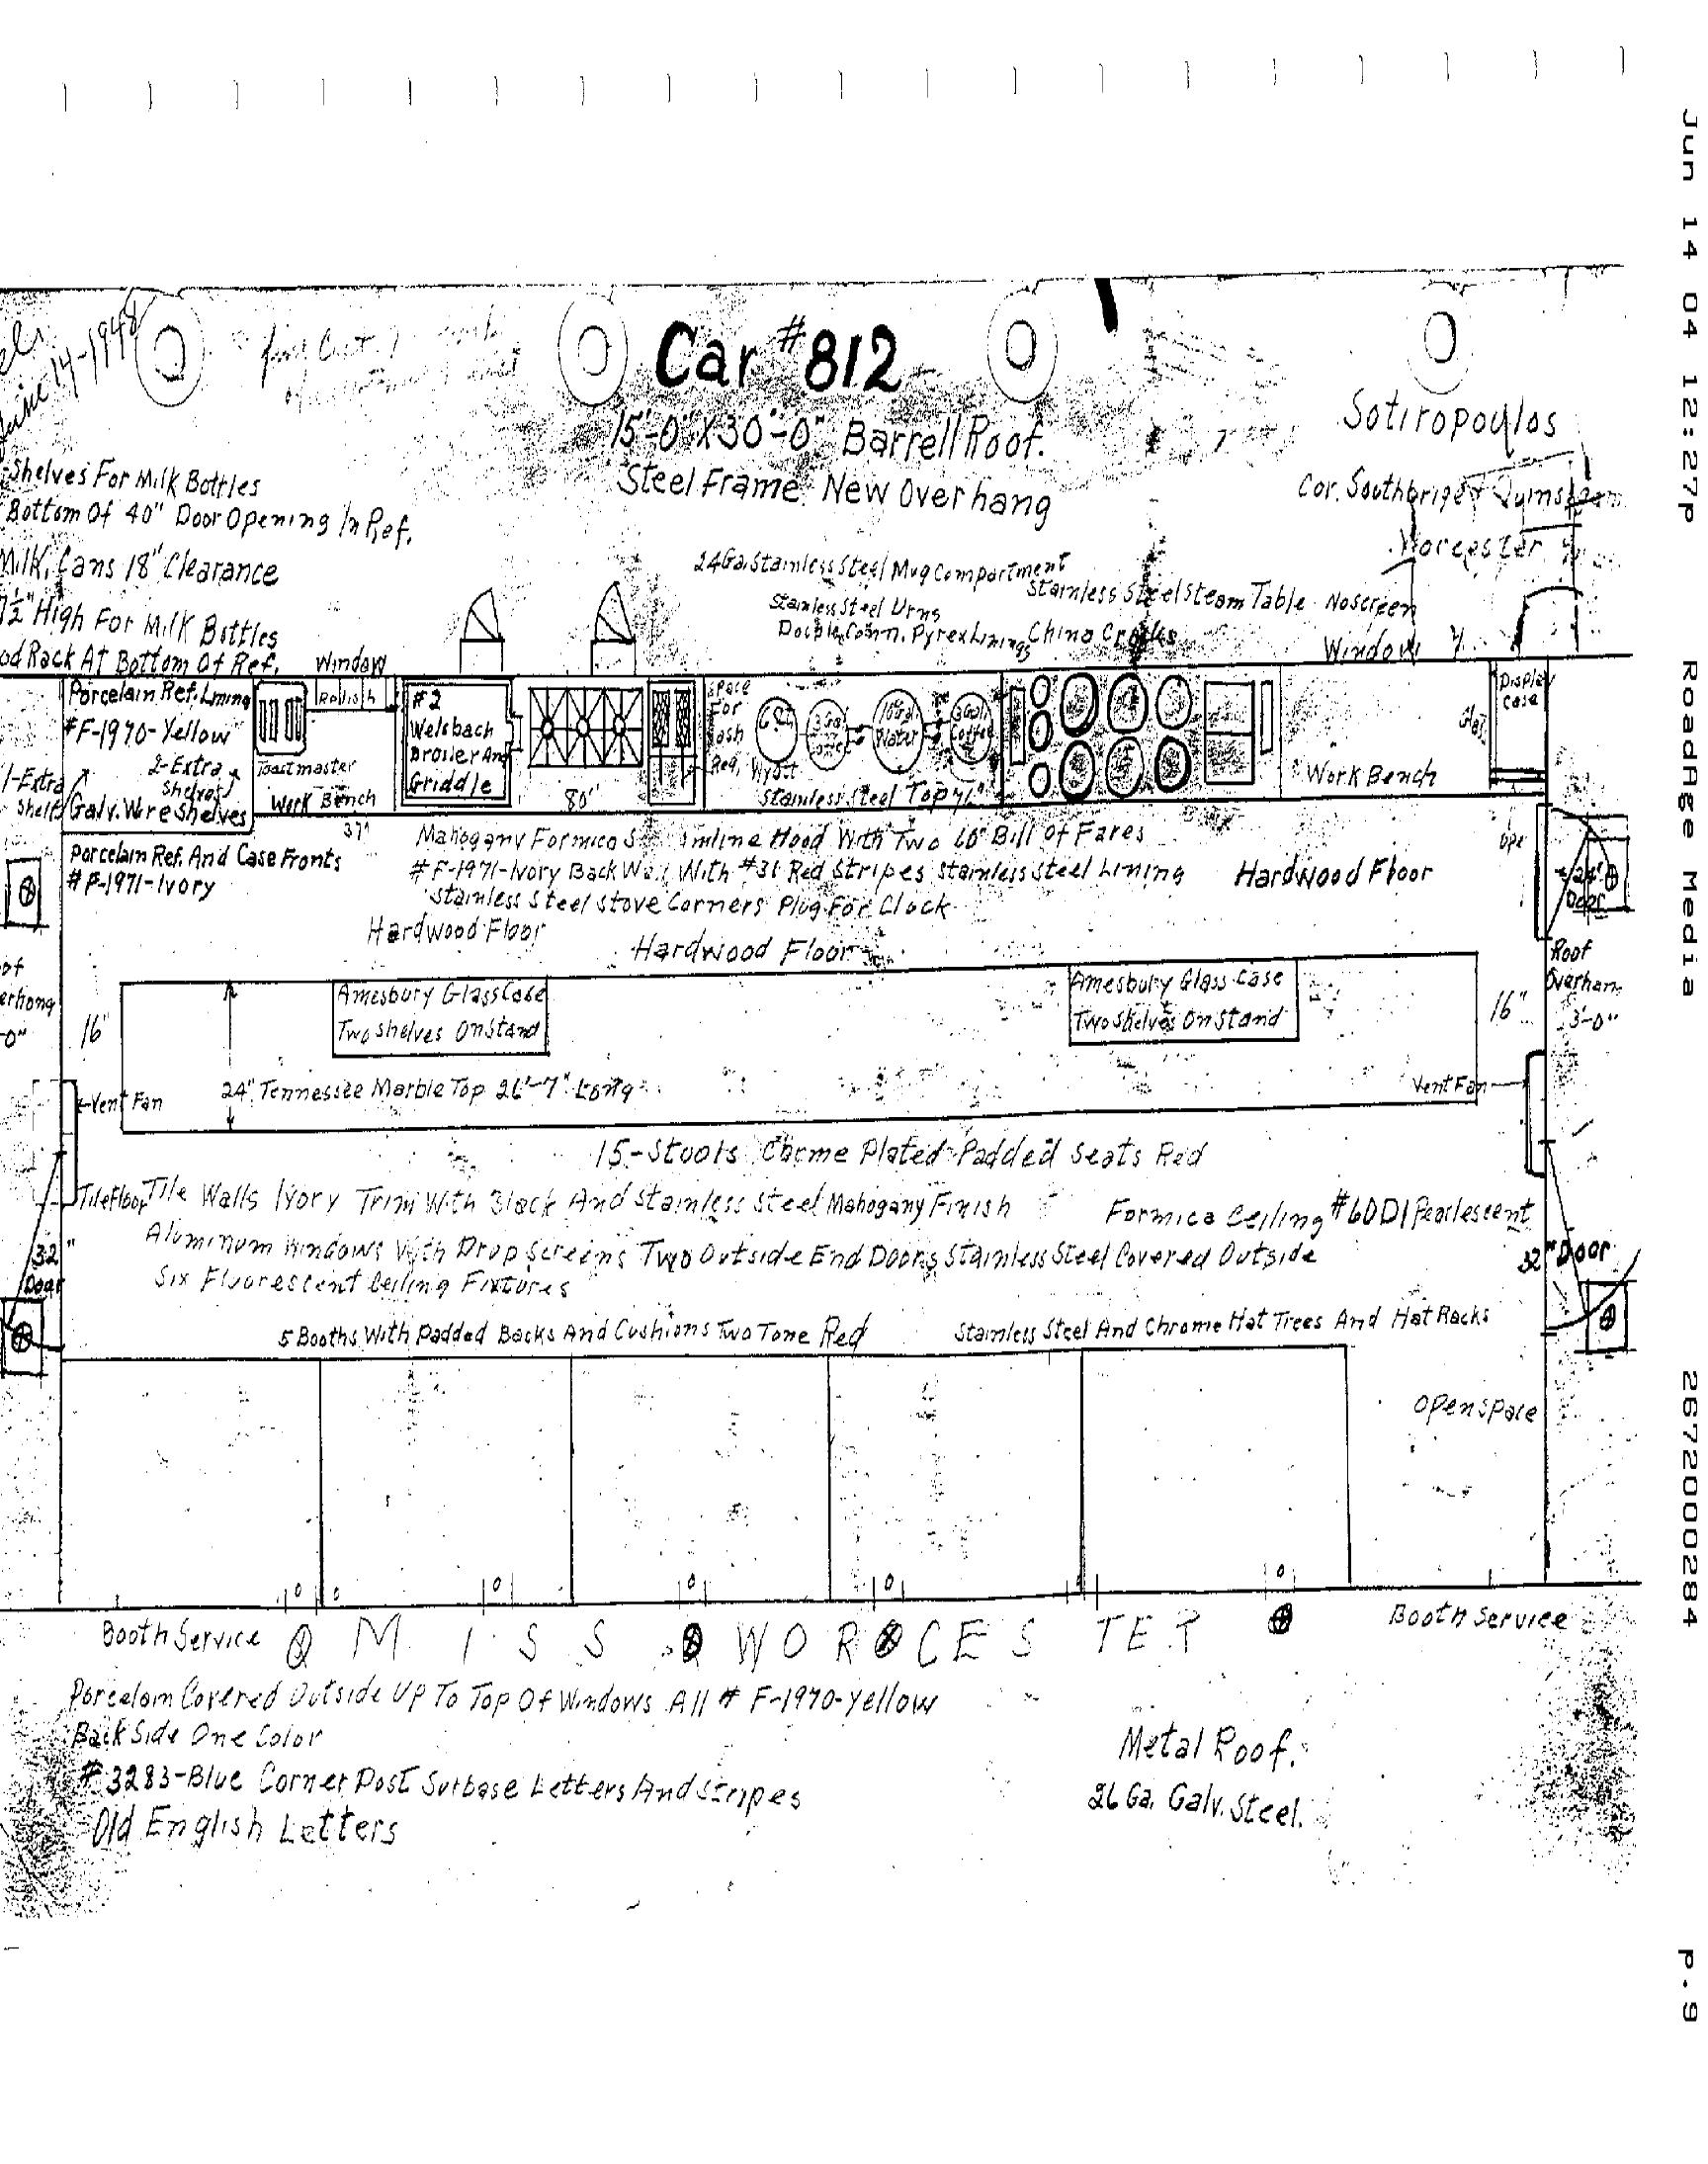 Jun 14 04 12:27p RoadAge Media 2672000284 p.9
June 14-1948
Car #812
15'-0" X 30'-0" Barrell Roof.
Steel Frame New Overhang
Sotiropoulos
Cor. Southbrige
Worcester
Shelves For Milk Bottles
Bottom Of 40" Door Opening In Ref.
Milk Cans 18" Clearance
1/2" High For Milk Bottles
Rack At Bottom Of Ref.
24Ga. Stainless Steel Mug Compartment
Stainless Steel Steam Table No Screen
Stainless Steel Urns
Double Comn. Pyrex Linings China Crocks
Window
Window
Porcelain Ref. Lining
#F-1970-Yellow
2-Extra
Shelves
1-Extra
Shelf
Galv. Wire Shelves
Toastmaster
Work Bench
37"
#2
Welsbach
Broiler And
Griddle
80"
Space
For
Cash
Reg.
Water
Coffee
Stainless Steel Top
Work Bench
Display
Case
Porcelain Ref. And Case Fronts
#F-1971-Ivory
Mahogany Formica Slimline Hood With Two 60" Bill Of Fares
#F-1971-Ivory Back Wall With #31 Red Stripes Stainless Steel Lining
Stainless Steel Stove Corners Plug For Clock
Hardwood Floor
Hardwood Floor
Hardwood Floor
24"
Door
Roof
Overhang
3'-0"
16"
16"
Amesbury Glass Case
Two Shelves On Stand
Amesbury Glass Case
Two Shelves On Stand
24" Tennessee Marble Top 26'-7" Long
Vent Fan
Vent Fan
15-Stools Chrme Plated Padded Seats Red
Tile Floor
Tile Walls Ivory Trim With Black And Stainless Steel Mahogany Finish
Formica Ceiling #60D1 Pearlescent
Aluminum Windows With Drop Screens Two Outside End Doors Stainless Steel Covered Outside
Six Fluorescent Ceiling Fixtures
32"
Door
32" Door
5 Booths With Padded Backs And Cushions Two Tone Red
Stainless Steel And Chrome Hat Trees And Hat Racks
Open Space
Booth Service
MISS WORCESTER
Booth Service
Porcelain Covered Outside Up To Top Of Windows All # F-1970-Yellow
Back Side One Color
#3283-Blue Corner Post Surbase Letters And Stripes
Old English Letters
Metal Roof.
26 Ga. Galv. Steel.